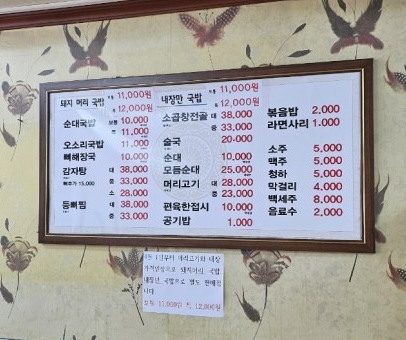 돼지 머리 국밥 보통 11,000원
특 12,000원
순대국밥 보통 10,000
특 11,000
오소리국밥 11,000
뼈해장국 10,000
감자탕 대 38,000
뼈추가 15,000 중 33,000
소 28,000
등뼈찜 대 38,000
중 33,000
내장만 국밥 보통 11,000원
특 12,000원
소곱창전골 대 38,000
중 33,000
술국 20,000
순대 10,000
모듬순대 25,000
머리고기 대 28,000
중 23,000
편육한접시 10,000
공기밥 1,000
볶음밥 2,000
라면사리 1,000
소주 5,000
맥주 5,000
청하 5,000
막걸리 4,000
백세주 8,000
음료수 2,000
1일부터 머리고기와 내장
가격인상으로 돼지머리 국밥
내장만 국밥으로 별도 판매합
니다.
보통 11,000원 특 12,000원